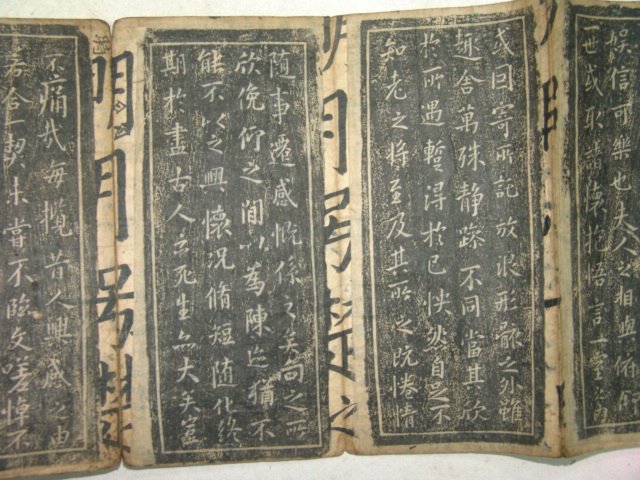 娛信可樂也夫人之相與俯仰
一世或取諸懷抱悟言一室之内
或因寄所託放浪形骸之外雖
趣舍萬殊静躁不同當其欣
於所遇暫得於己怏然自足不
知老之将至及其所之既惓情
随事遷感慨係之矣向之所
欣俛仰之閒以為陳迹猶不
能不以之興懷況脩短随化終
期於盡古人云死生亦大矣豈
明月
不痛哉每攬昔人興感之由
若合一契未嘗不臨文嗟悼不